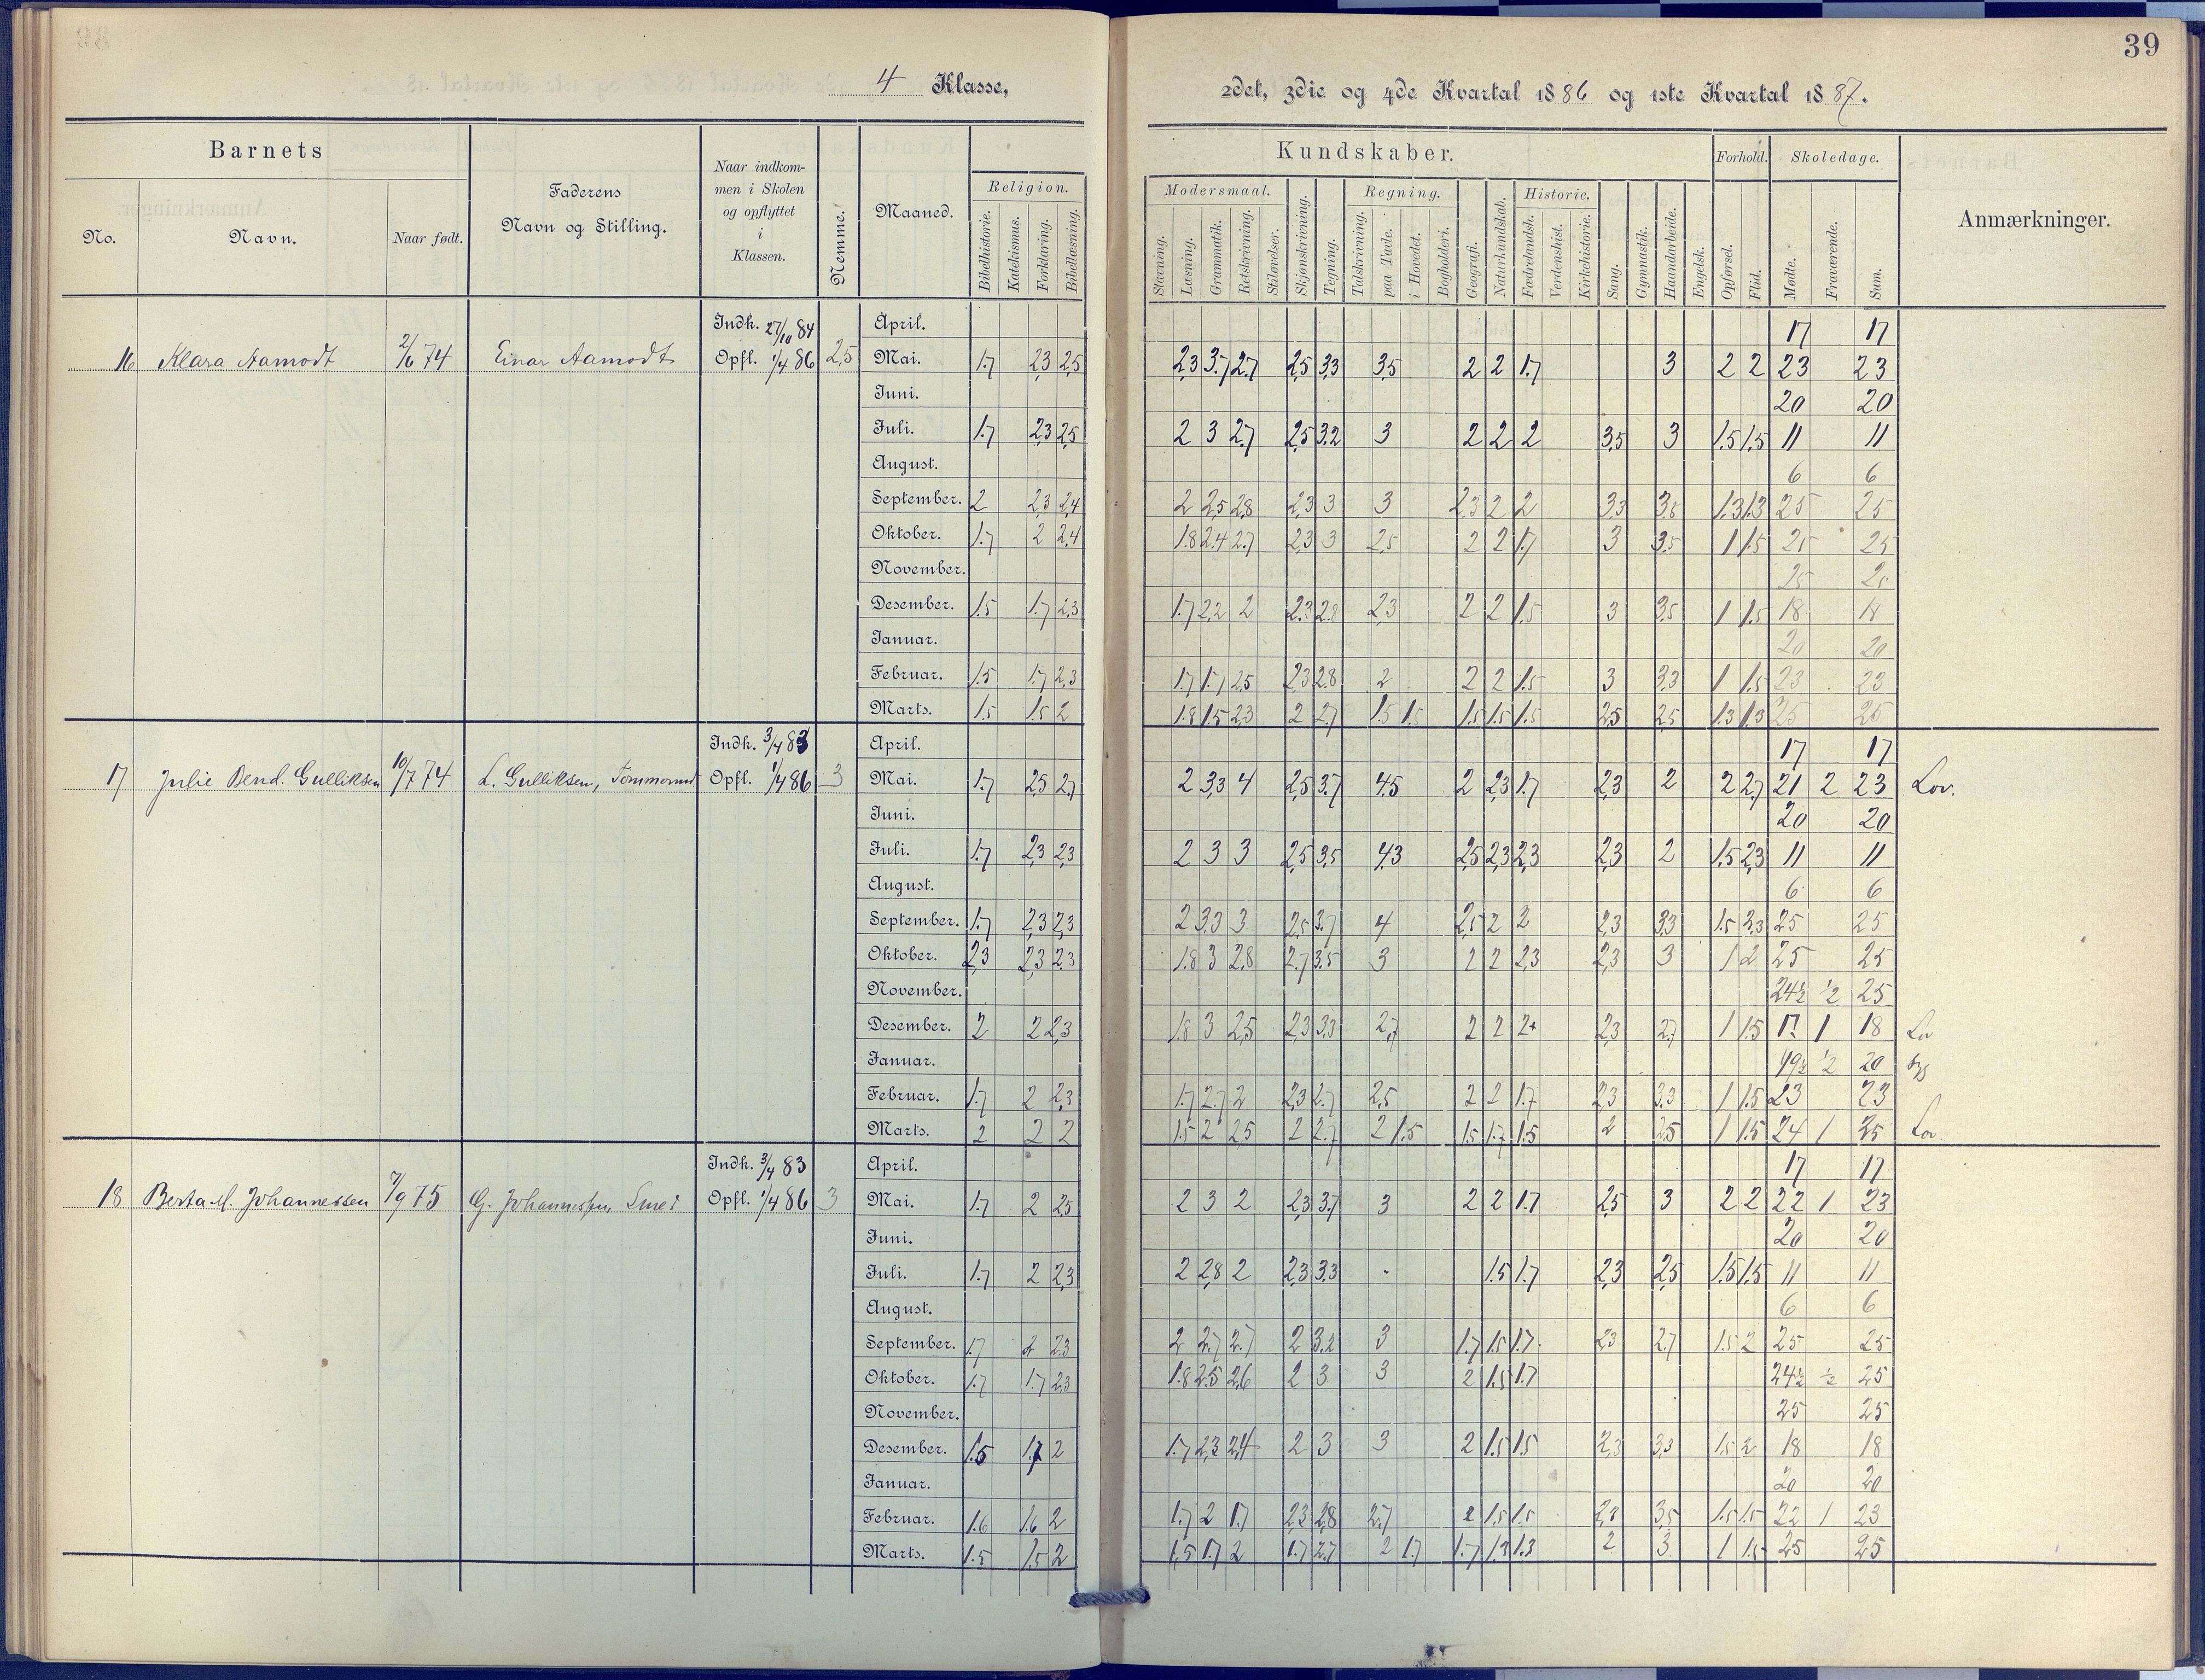 39
4 Klasse,
2det, 3die og 4de Kvartal 1886 og 1ste Kvartal 1887.
Barnets
No.
Navn.
Naar født.
Faderens
Navn og Stilling.
Naar indkom-
men i Skolen
og opflyttet
i
Klassen.
Nemme.
Maaned.
Religion.
Bibelhistorie.
Katekismus.
Forklaring.
Bibellæsning.
Kundskaber.
Modersmaal.
Stavning.
Læsning.
Grammatik.
Retskrivning.
Stiløvelser.
Skjønskrivning.
Tegning.
Regning.
Talskrivning.
paa Tavle.
i Hovedet.
Bogholderi.
Geografi.
Naturkundskab.
Historie.
Fædrelandsh.
Verdenshist.
Kirkehistorie.
Sang.
Gymnastik.
Haandarbeide.
Engelsk.
Forhold.
Opførsel.
Flid.
Skoledage.
Mødte.
Fraværende.
Sum.
Anmærkninger.
Indk. 27/10 84 April. 17 17
16 Klara Aamodt 2/6 74 Einar Aamodt Opfl. 1/4 86 2,5 Mai. 1.7 2,3 2,5 2,3 3.7 2.7 2,5 3,3 3,5 2 2 1.7 3 2 2 23 23
Juni. 20 20
Juli. 1.7 2,3 2,5 2 3 2.7 2,5 3.2 3 2 2 2 3,5 3 1.5 1.5 11 11
August. 6 6
September. 2 2,3 2,4 2 2,5 2,8 2,3 3 3 2,3 2 2 3,3 3,5 1.3 1.3 25 25
Oktober. 1.7 2 2,4 1.8 2.4 2.7 2,3 3 2,5 2 2 1.7 3 3.5 1 1.5 25 25
November. 25 25
Desember. 1.5 1.7 2,3 1.7 2,2 2 2,3 2.8 2,3 2 2 1.5 3 3,5 1 1.5 18 18
Januar. 20 20
Februar. 1.5 1.7 2,3 1.7 1.7 2,5 2,3 2.8 2 2 2 1.5 3 3,3 1 1.5 23 23
Marts. 1.5 1.5 2 1.8 1.5 2,3 2 2,7 1.5 1.5 1.5 1.5 1.5 2,5 2,5 1.3 1.3 25 25
Indk. 3/4 83 April. 17 17
17 Julie Bend. Gulliksen 10/7 74 L. Gulliksen, Tømmermd Opfl. 1/4 86 3 Mai. 1.7 2,5 2.7 2 3,3 4 2,5 3.7 4.5 2 2,3 1.7 2,3 2 2 2,7 21 2 23 Lov.
Juni. 20 20
Juli. 1.7 2,3 2,3 2 3 3 2,5 3,5 4.3 2,5 2,3 2,3 2,3 2 1.5 2,3 11 11
August. 6 6
September. 1.7 2,3 2,3 2 3,3 3 2,5 3.7 4 2,5 2 2 2,3 3,3 1.5 3,3 25 25
Oktober. 2,3 2,3 2,3 1.8 3 2.8 2.7 3.5 3 2 2 2,3 2,3 3 1 2 25 25
November. 24½ ½ 25
Desember. 2 2 2,3 1.8 3 2,5 2,3 3,3 2,7 2 2 2+ 2,3 2,7 1 1.5 17 1 18 Lov
Januar. 19½ ½ 20 Syg
Februar. 1.7 2 2,3 1.7 2.7 2 2,3 2.7 2,5 2 2 1.7 2,3 3,3 1 1.5 23 23
Marts. 2 2 2 1.5 2 2,5 2 2.7 2 1.5 1.5 1.7 1.5 2 2,5 1 1.5 24 1 25 Lov.
Indk. 3/4 83 April. 17 17
18 Berta M. Johannessen 7/9 75 G. Johannessen, Smed Opfl. 1/4 86 3 Mai. 1.7 2 2,5 2 3 2 2,3 3.7 3 2 2 1.7 2,5 3 2 2 22 1 23
Juni. 20 20
Juli. 1.7 2 2,3 2 2,8 2 2,3 3.3 - 1.5 1.7 2,3 2,5 1.5 1.5 11 11
August. 6 6
September. 1.7 2 2,3 2 2.7 2.7 2 3.2 3 1.7 1.5 1.7 2,3 2,7 1.5 2 25 25
Oktober. 1.7 1.7 2,3 1.8 2.5 2,6 2 3 3 2 1.5 1.7 24½ ½ 25
November. 25 25
Desember. 1.5 1.7 2 1.7 2,3 2,4 2 3 3 2 1.5 1.5 2,3 3,3 1.5 2 18 18
Januar. 20 20
Februar. 1.6 1.6 2 1.7 2 1.7 2,3 2,8 2.7 2 1.5 1.5 2,3 3,5 1.5 1.5 22 1 23
Marts. 1.5 1.5 2 1,5 1.7 2 1.7 2.7 2 1.7 1.7 1.3 1.3 2 3 1 1.5 25 25